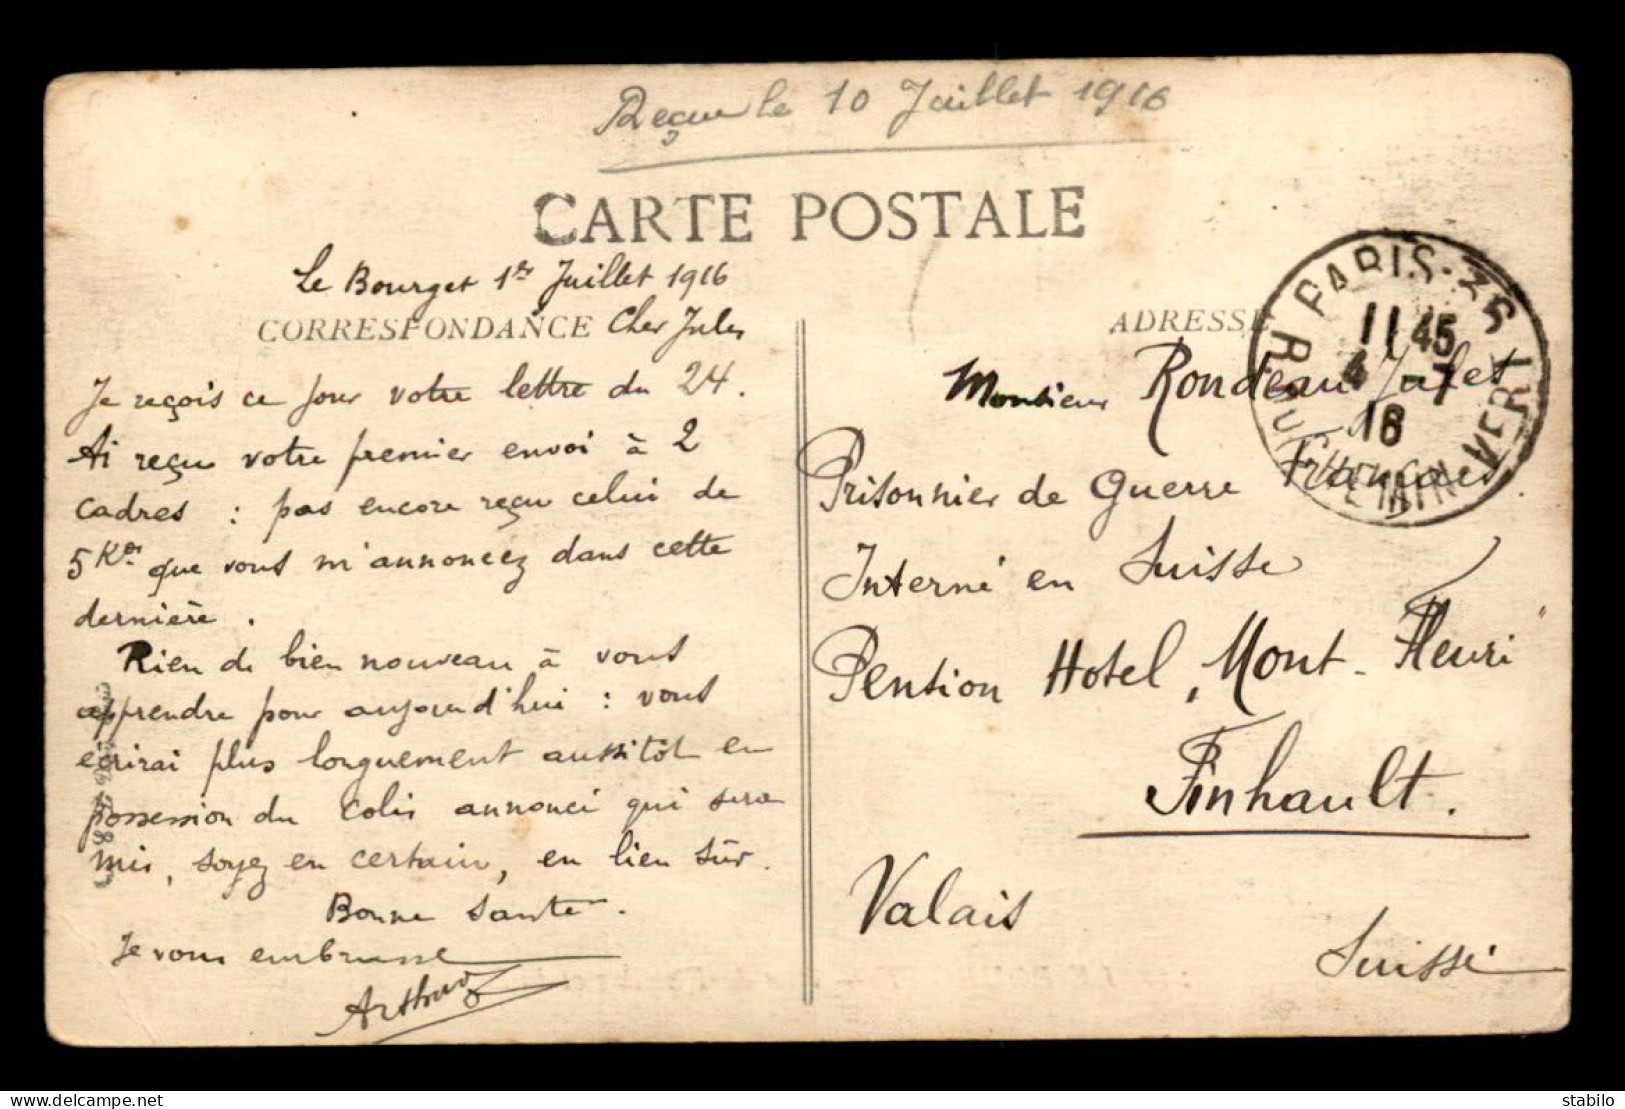 Reçue le 10 Juillet 1916
CARTE POSTALE
Le Bourget 1er Juillet 1916
CORRESPONDANCE Cher Jules
Je reçois ce jour votre lettre du 24.
Ai reçu votre premier envoi à 2
cadres : pas encore reçu celui de
5 Kos que vous m'annoncez dans cette
dernière.
Rien de bien nouveau à vous
apprendre pour aujourd'hui : vous
écrirai plus longuement aussitôt en
possession du colis annoncé qui sera
mis, soyez en certain, en lieu sûr.
Bonne santé.
Je vous embrasse
Arthur
ADRESSE
PARIS 35
11 45
4 7
16
Monsieur Rondeau Jules
Prisonnier de Guerre Français.
Interné en Suisse
Pension Hotel "Mont-Fleuri"
Finhault.
Valais
Suisse
stabilo | www.delcampe.net